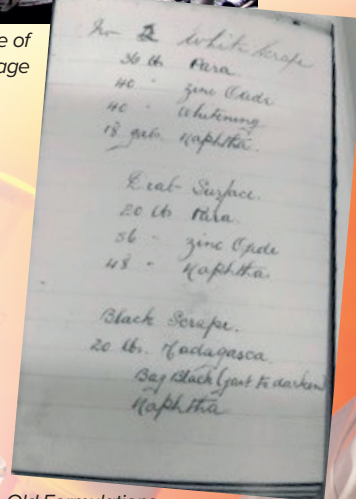 e of
age
No 2 White Scrape
36 lbs Para
40 " Zinc Oxide
40 " Whitening
18 gals. Naphtha.
Drab Surface.
20 lbs Para.
56 " Zinc Oxide
48 " Naphtha
Black Scrape.
20 lbs. Madagasca
Bag Black (just to darken)
Naphtha
Old Formulations